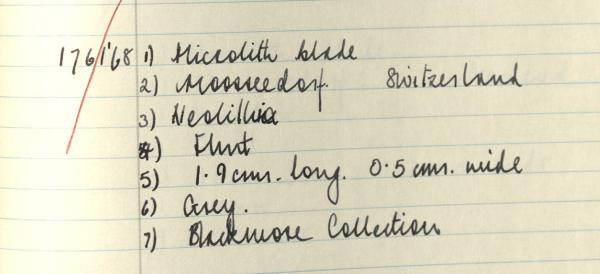 176/'68 1) Microlith blade
2) Moosseedorf. Switzerland
3) Neolithic
4) Flint
5) 1.9 cms. long. 0.5 cms. wide
6) Grey.
7) Blackmore Collection